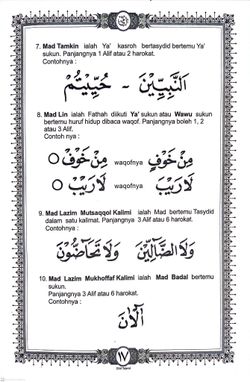 7. Mad Tamkin ialah Ya' kasroh bertasydid bertemu Ya'
sukun. Panjangnya 1 Alif atau 2 harokat.
Contohnya :
اَلنَّبِيِّيْنَ - حُيِّيْتُمْ
8. Mad Lin ialah Fathah diikuti Ya' sukun atau Wawu sukun
bertemu huruf hidup dibaca waqof. Panjangnya boleh 1, 2
atau 3 Alif.
Contoh nya :
مِنْ خَوْفٍ waqofnya مِنْ خَوْفْ
لَارَيْبَ waqofnya لَارَيْبْ
9. Mad Lazim Mutsaqqol Kalimi ialah Mad bertemu Tasydid
dalam satu kalimat. Panjangnya 3 Alif atau 6 harokat.
Contohnya :
وَلَا الضَّآلِّيْنَ وَلَا تَحَآضُّوْنَ
10. Mad Lazim Mukhoffaf Kalimi ialah Mad Badal bertemu
sukun.
Panjangnya 3 Alif atau 6 harokat.
Contohnya :
آلْآنَ
١٧